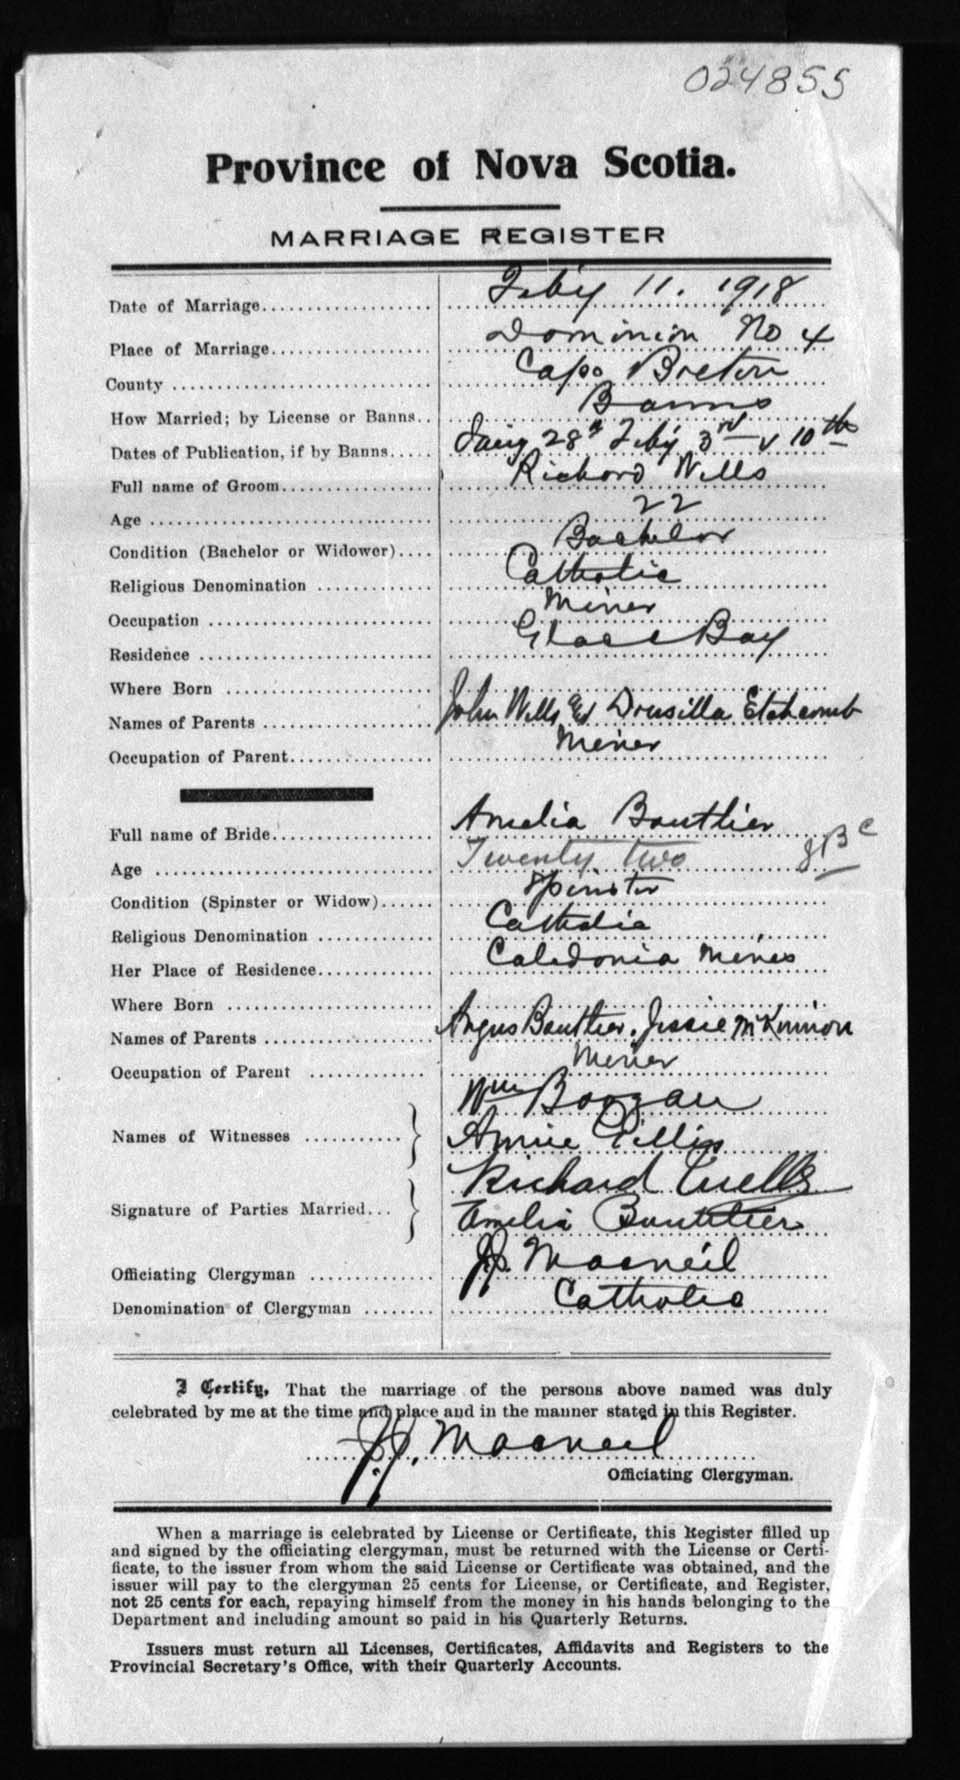 024855
Province of Nova Scotia.
MARRIAGE REGISTER
Date of Marriage Feby 11. 1918
Place of Marriage Dominion No 4
County Cape Breton
How Married; by License or Banns Banns
Dates of Publication, if by Banns 28th Feby 3rd & 10th
Full name of Groom Richard Wells
Age 22
Condition (Bachelor or Widower) Bachelor
Religious Denomination Catholic
Occupation Miner
Residence Glace Bay
Where Born
Names of Parents John Wells Et Drusilla Etchcomb
Occupation of Parent Miner
Full name of Bride Amelia Boutlier
Age Twenty two
Condition (Spinster or Widow) Spinster
Religious Denomination Catholic
Her Place of Residence Caledonia Mines
Where Born
Names of Parents Angus Boutlier. Jessie McKinnon
Occupation of Parent Miner
Names of Witnesses Wm
Annie Gillis
Signature of Parties Married Richard Wells
Amelia Boutilier
Officiating Clergyman J.J. Macneil
Denomination of Clergyman Catholic
I Certify, That the marriage of the persons above named was duly
celebrated by me at the time and place and in the manner stated in this Register.
J.J. Macneil
Officiating Clergyman.
When a marriage is celebrated by License or Certificate, this Register filled up
and signed by the officiating clergyman, must be returned with the License or Certi-
ficate, to the issuer from whom the said License or Certificate was obtained, and the
issuer will pay to the clergyman 25 cents for License, or Certificate, and Register,
not 25 cents for each, repaying himself from the money in his hands belonging to the
Department and including amount so paid in his Quarterly Returns.
Issuers must return all Licenses, Certificates, Affidavits and Registers to the
Provincial Secretary's Office, with their Quarterly Accounts.